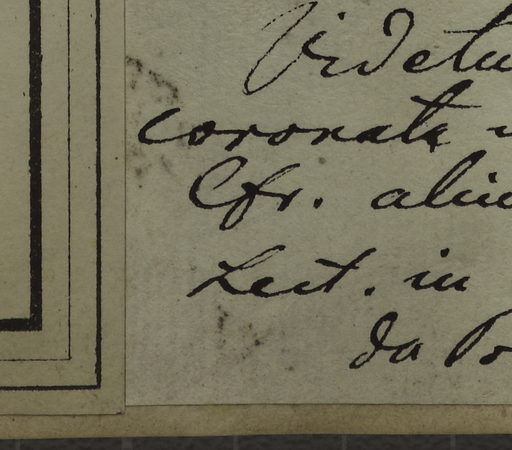 Videtu
coronata
Cfr. aliu
Lect. in
da Po